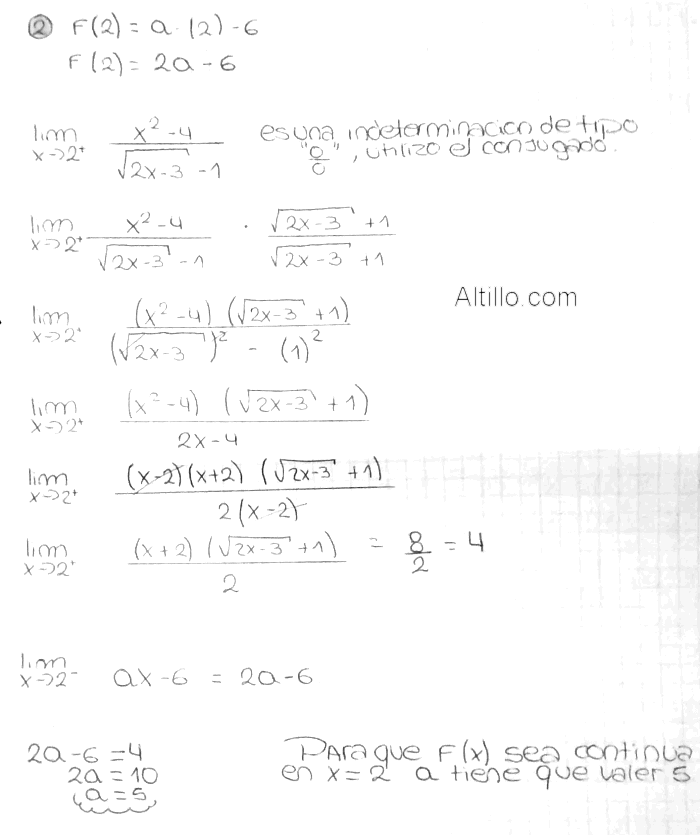 ② F(2) = a · (2) - 6
F(2) = 2a - 6
lim x→2⁺ (x² - 4)/(√(2x-3) - 1) es una indeterminacion de tipo
"0/0", utilizo el conjugado.
lim x→2⁺ (x² - 4)/(√(2x-3) - 1) · (√(2x-3) + 1)/(√(2x-3) + 1)
Altillo.com
lim x→2⁺ ((x² - 4) (√(2x-3) + 1))/((√(2x-3))² - (1)²)
lim x→2⁺ ((x² - 4) (√(2x-3) + 1))/(2x - 4)
lim x→2⁺ ((x-2)(x+2) (√(2x-3) + 1))/(2(x-2))
lim x→2⁺ ((x+2) (√(2x-3) + 1))/2 = 8/2 = 4
lim x→2⁻ ax - 6 = 2a - 6
2a - 6 = 4
2a = 10
a = 5
Para que F(x) sea continua
en x = 2 a tiene que valer 5